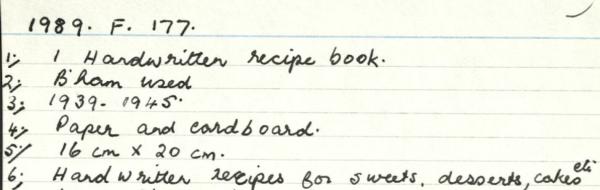 1989. F. 177.
1; 1 Handwritten recipe book.
2; B'ham used
3; 1939-1945.
4; Paper and cardboard.
5; 16 cm x 20 cm.
6; Handwritten recipes for sweets, desserts, cakes etc